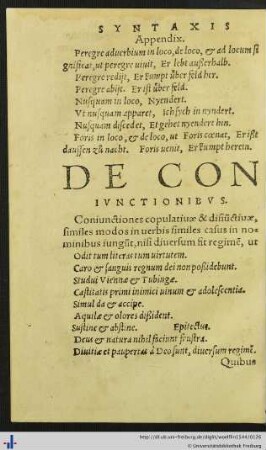 SYNTAXIS
Appendix.
Peregre aduerbium in loco, de loco, & ad locum si
gnificat, ut peregre uiuit, Er lebt ausserhalb.
Peregre redijt, Er kumpt über feld her.
Peregre abijt. Er ist über feld.
Nusquam in loco, Nyendert.
Vt nusquam apparet, ich syh in nyndert.
Nusquam discedet, Er gehet nyendert hin.
Foris in loco, & de loco, ut Foris cœnat, Er ist
daussen zů nacht. Foris uenit, Er kumpt herein.
DE CON
IVNCTIONIBVS.
Coniunctiones copulatiuæ & disiūctiuæ,
similes modos in uerbis similes casus in no-
minibus iungūt, nisi diuersum sit regimē, ut
Odit tum literas tum uirtutem.
Caro & sanguis regnum dei non possidebunt.
Studui Viennæ & Tubingæ.
Castitatis primi inimici uinum & adolescentia.
Simul da & accipe.
Aquilæ & olores dissident.
Sustine & abstine. Epictetus.
Deus & natura nihil faciunt frustra.
Diuitiæ et paupertas à Deo sunt, diuersum regimē.
Quibus
© Universitätsbibliothek Freiburg